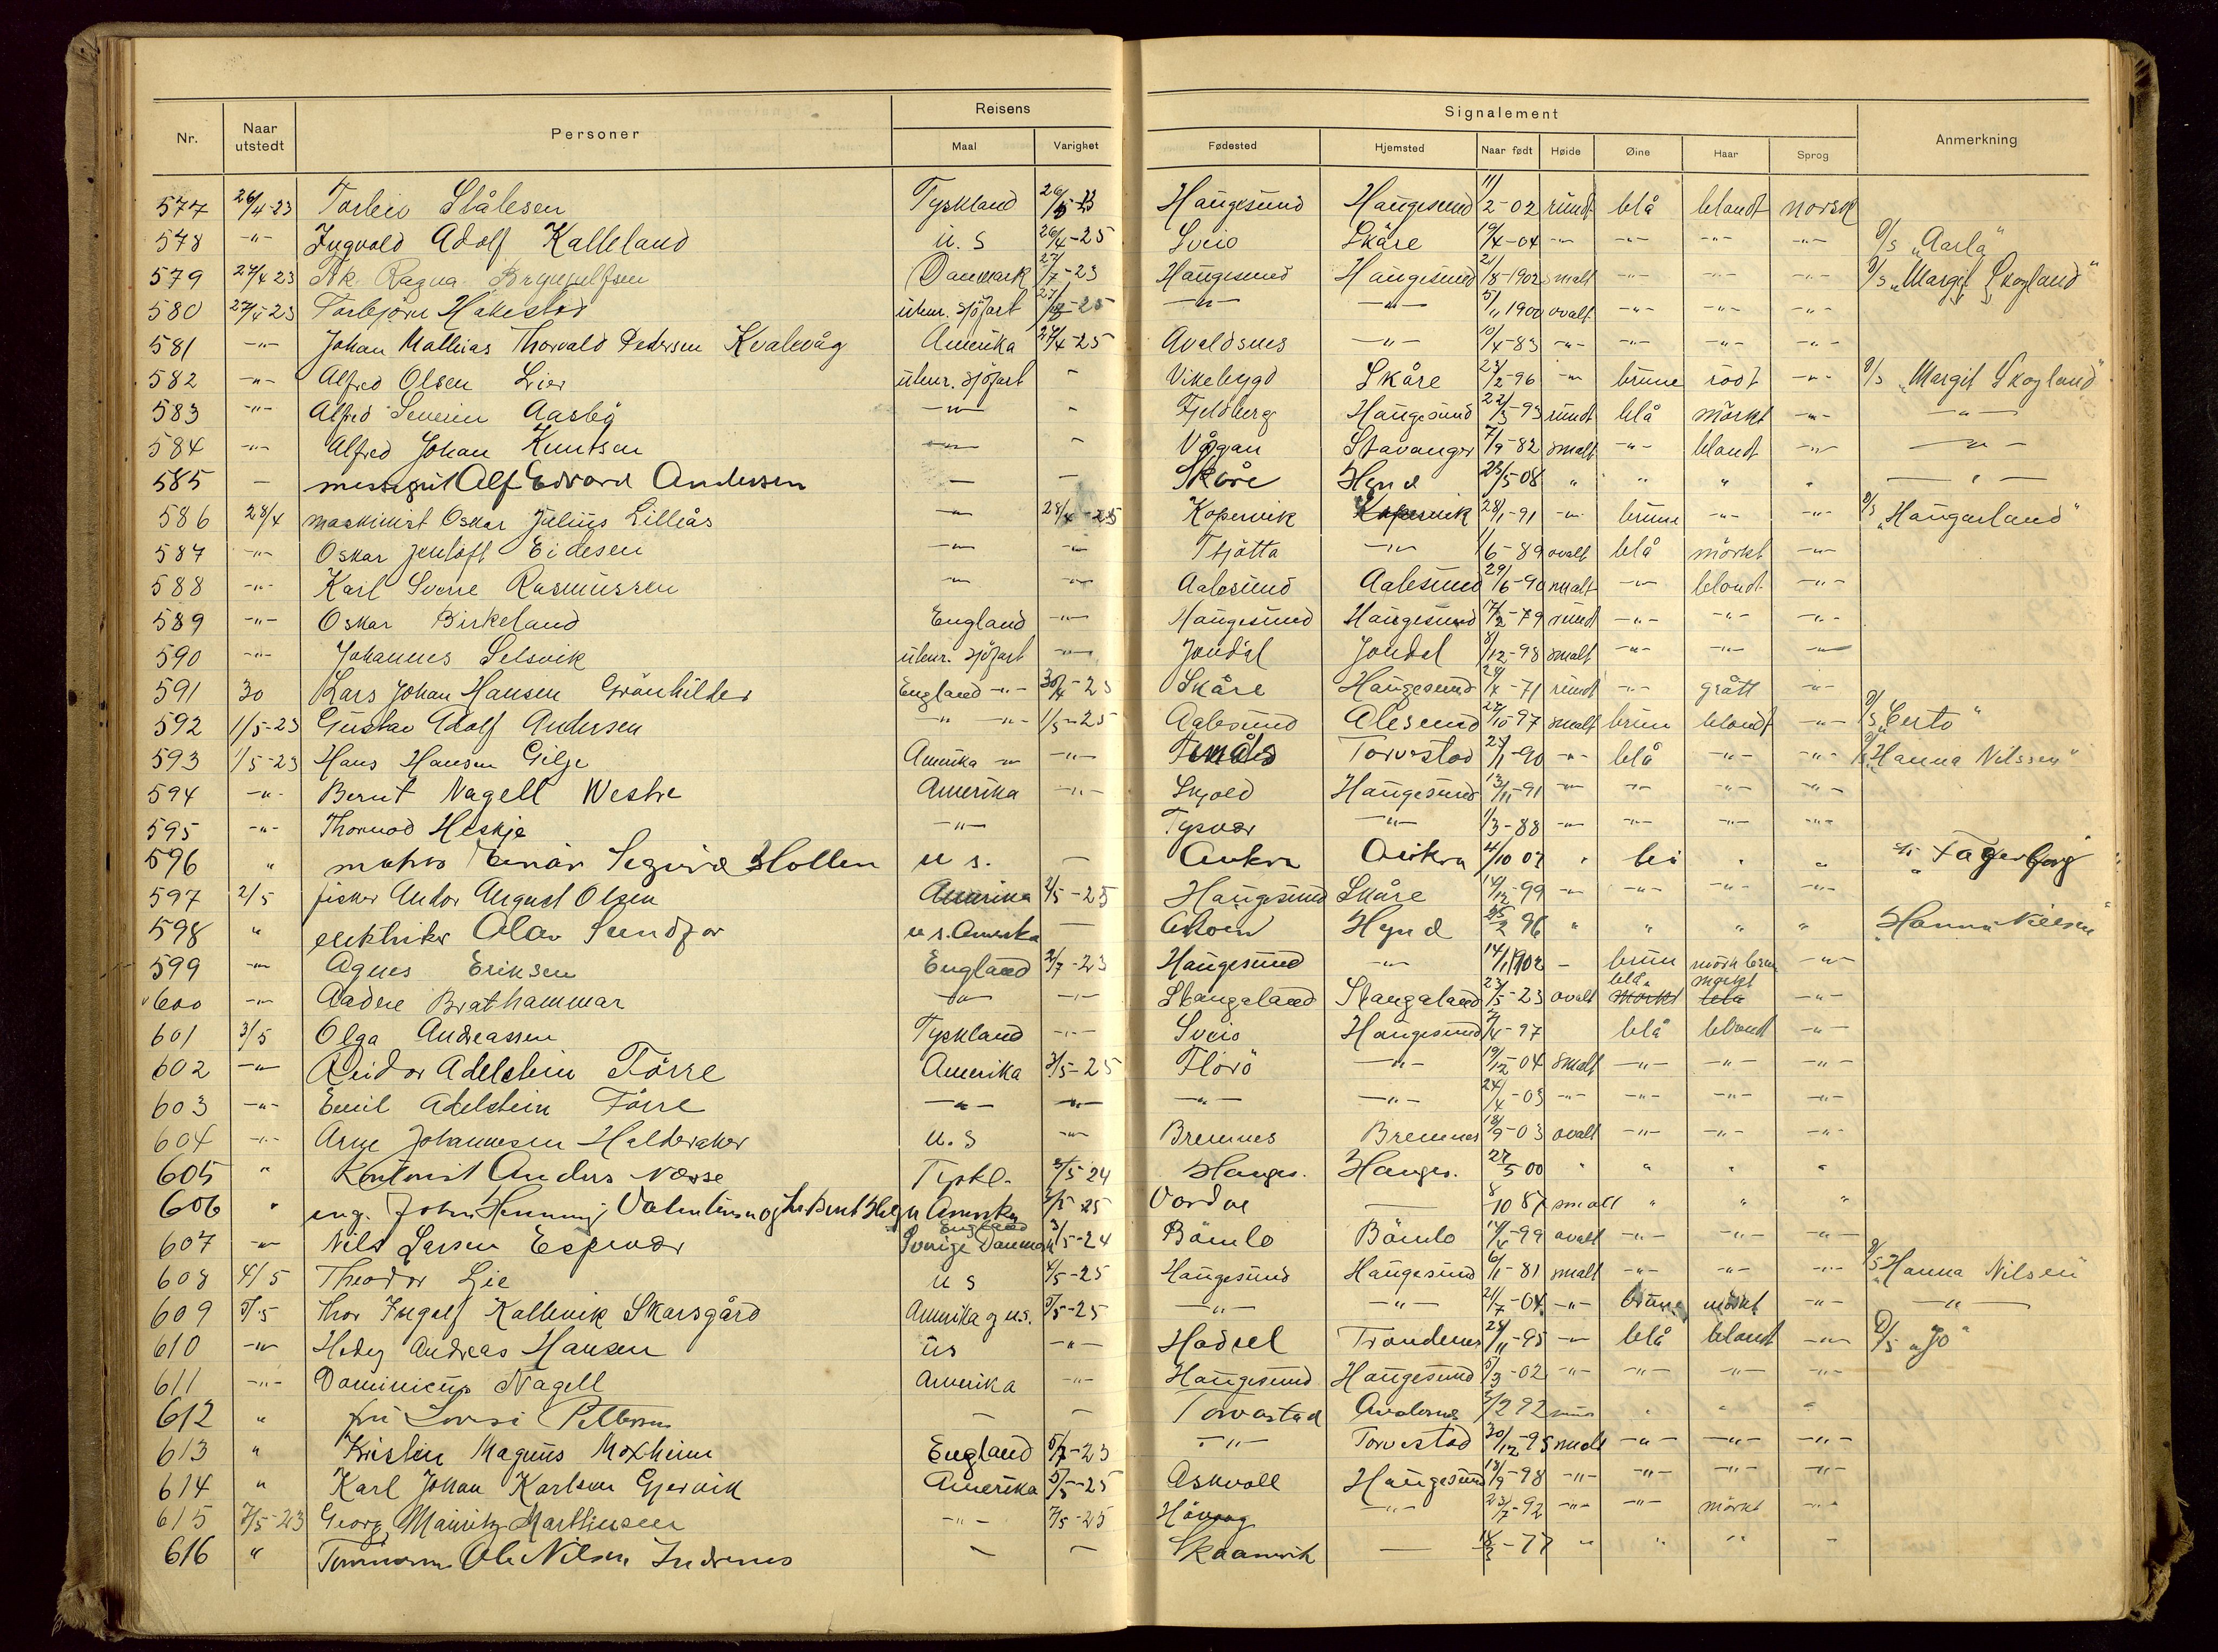 Nr. Naar utstedt Personer Reisens Maal Varighet Signalement Fødested Hjemsted Naar født Høide Øine Haar Sprog Anmerkning
577 26/4-23 Torleiv Stålesen Tyskland 26/5-23 Haugesund Haugesund 11/2-02 rundt blå blondt norsk
578 -"- Ingvald Adolf Kalleland u.s 26/4-25 Sveio Skåre 19/4-04 -"- -"- -"- -"- D/s "Aarla"
579 27/4 23 Frk. Ragna Brynjulfsen Danmark 27/7-23 Haugesund Haugesund 21/8-1902 smalt -"- -"- -"- D/s "Margit Skogland"
580 27/4-23 Torbjörn Hakestad utenr. sjöfart -25 -"- -"- 5/11 1900 ovalt -"- -"- -"-
581 -"- Johan Mathias Thorvald Pedersen Kvalevåg Amerika 27/4-25 Avaldsnes -"- 10/4-83 -"- -"- -"- -"-
582 -"- Alfred Olsen Lier utenr. sjöfart - Vikebygd Skåre 23/2-96 -"- brune rödt -"- D/s "Margit Skogland"
583 -"- Alfred Severin Aasbö -"- - Fjeldberg Haugesund 22/3-93 rundt blå mörkt -"- -"-
584 -"- Alfred Johan Knutsen -"- - Vågan Stavanger 7/9-82 smalt -"- blondt -"- -"-
585 - messegut Alf Edvard Andersen - - Skåre Hgnd 23/5 08 " " " " - " -
586 28/4 maskinist Oskar Julius Lilleås -"- 28/4-25 Kopervik Kopervik 28/1-91 -"- brune -"- -"- D/s "Haugarland"
587 -"- Oskar Jentoft Eidesen -"- -"- Tjötta -"- 1/6-89 ovalt blå mörkt -"-
588 -"- Karl Sverre Rasmussen -"- -"- Aalesund Aalesund 29/6-90 smalt -"- blondt -"-
589 -"- Oskar Birkeland England -"- Haugesund Haugesund 17/2-79 rundt -"- -"- -"-
590 -"- Johannes Selsvik utenr. sjöfart -"- Jondal Jondal 8/12-98 smalt -"- -"- -"-
591 30 Lars Johan Hansen Grönhilder England -"- 30/4-25 Skåre Haugesund -71 rundt -"- grått -"-
592 1/5-23 Gustav Adolf Andersen -"- -"- 1/5-25 Aalesund Alesund 27/10-97 smalt brun blondt -"- D/s "Certo"
593 1/5-23 Hans Hansen Gilje Amerika -"- -"- Torvestad 24/1-90 -"- blå -"- -"- D/s "Hanna Nilssen"
594 -"- Bernt Nagell Westre Amerika -"- Skjold Haugesund 13/11-91 -"- -"- -"- -"-
595 -"- Thormod Heskje -"- Tysvær -"- 1/3-88 -"- -"- -"- -"-
596 " matros Einar Sigurd Hollen u s. - Aukra Aukra 4/10 02 " " " D/s "Fagerborg"
597 2/5 fisker Andor August Olsen Amerika 2/5-25 Haugesund Skåre 14/12-99 -"- -"- -"- -"-
598 " elektriker Olav Sundfor u s. Amerika - Hgnd 96 " " " " "Hanna Nilsen"
599 -"- Agnes Eriksen England 2/7-23 Haugesund -"- 14/1 1902 - brun mörk brun -"-
600 -"- Aadne Brathammar -"- -"- Stangaland Stangaland 23/5-23 ovalt blå mörkt mörkt blå -"-
601 3/5 Olga Andreassen Tyskland -"- Sveio Haugesund -97 blå blondt -"-
602 -"- Reidar Adelstein Förre Amerika 3/5-25 Florö -"- 19/12 04 smalt -"- -"- -"-
603 -"- Emil Adelstein Förre -"- -"- -"- -"- 24/4-03 -"- -"- -"- -"-
604 -"- Arne Johannesen Halderaker u.s -"- Bremnes Bremnes 18/9-03 ovalt -"- -"- -"-
605 " Kontorist Anders Nærse Tyskl. 3/5 24 Hauges. Hauges. 27/5 00 " " " "
606 " ing. John Henning Valentinsen og Amerika 3/5 25 Vardøe - 8/10 87 smalt " " "
607 -"- Nils Larsen Espevær Sverige Danmark England 3/5-24 Bömlo Bömlo 14/4-99 ovalt -"- -"- -"-
608 4/5 Theodor Lie u s 4/5-25 Haugesund Haugesund 6/1-81 smalt -"- -"- -"- D/s "Hanna Nilsen"
609 5/5 Thor Ingolf Kallevik Skarsgård Amerika og u.s. 5/5-25 -"- -"- 21/7-04 -"- brune mörkt -"- -"-
610 -"- Andreas Hansen us -"- Hadsel Trondenes 28/11-95 -"- blå blondt -"- D/s "Jo"
611 -"- Dominicus Nagell Amerika -"- Haugesund Haugesund 5/3-02 -"- -"- -"- -"-
612 " fru Lovise Pettersen - - Torvastad Avaldsnes 92 " " "
613 " Kristen Magnus Moxheim England 5/7-23 -"- Torvestad 30/12-95 smalt -"- -"- -"-
614 " Karl Johan Karlsen Gjervik Amerika 5/5-25 Askvoll Haugesund 18/9-98 -"- -"- -"- -"-
615 7/5-23 Georg Mauritz Martinsen -"- 7/5-25 Hövaag -"- 23/7-92 -"- -"- mörkt -"-
616 " Tømmerm. Ole Nilsen Indrenes - - Skaanevik - -77 " " " "